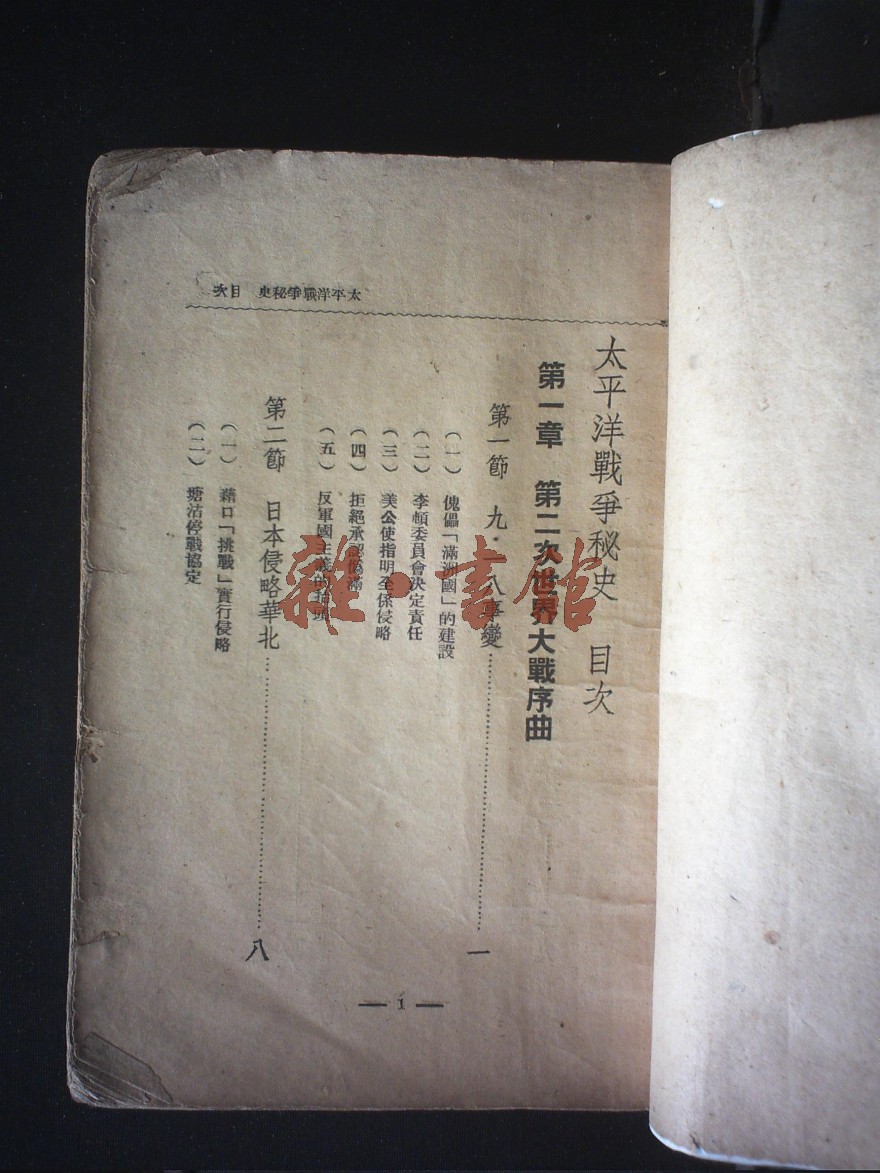 太平洋戰爭秘史 目次
太平洋戰爭秘史 目次
第一章 第二次世界大戰序曲
第一節 九·一八事變…………一
（一） 傀儡「滿洲國」的建設
（二） 李頓委員會決定責任
（三） 美公使指明全係侵略
（四） 拒絕承認偽滿
（五） 反軍國主義的抬頭
第二節 日本侵略華北…………八
（一） 藉口「挑戰」實行侵略
（二） 塘沽停戰協定
— 1 —
雜·書館